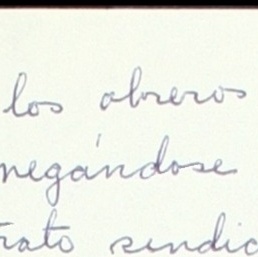 los obreros
negándose
trato sindic